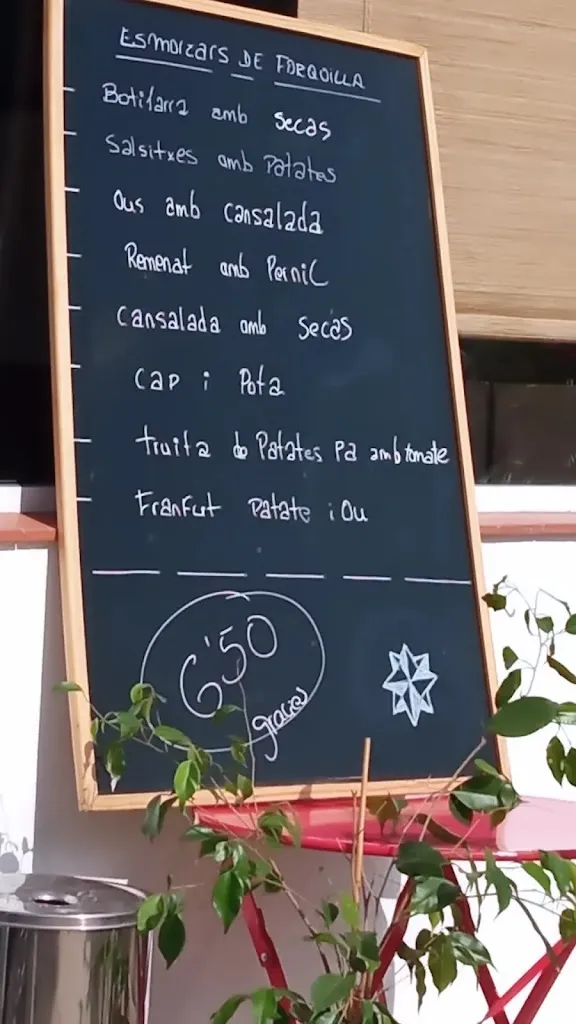 ESMORZARS DE FORQUILLA
Botifarra amb secas
Salsitxes amb Patates
Ous amb cansalada
Remenat amb Pernil
Cansalada amb secas
Cap i Pota
truita de Patates Pa amb tomate
Franfut Patate i Ou
6'50
gracies